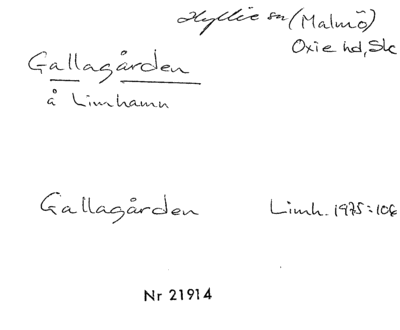 Hyllie sn (Malmö)
Oxie hd, Sk
Gallagården
å Limhamn
Gallagården Limh. 1975:106
Nr 21914